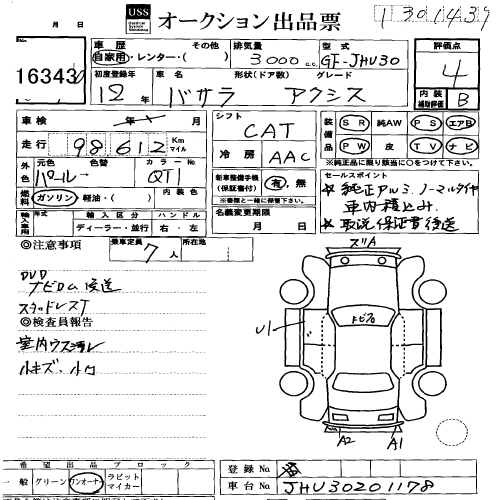 月 日
USS オークション出品票
1 301437
16343
車歴 自家用・レンター・( ) その他
排気量 3000 c.c.
型式 GF-JHU30
評価点 4
初度登録年 12年
車名 バサラ
形状(ドア数)
グレード アクシス
内装補助評価 B
車検 年 月
シフト CAT
装備品 SR 純AW PS エアB
PW 皮 TV ナビ
※純正品に限り該当に○をつけて下さい。
走行 98612 Km マイル
冷房 AAC
外色 元色 パール 色替 カラーNo QT1
新車整備手帳(保証書付) 有・無
※車検証と一緒に保管下さい。
セールスポイント
★純正アルミ、ノーマルタイヤ
車内積込み、
★取説保証書後送
燃料 ガソリン・軽油・( ) 内装色
名義変更期限 月 日
輸入車用 年式 年 輸入区分 ディーラー・並行 ハンドル 右・左
◎注意事項
乗車定員 7人
所在地
DVD
ナビロム後送
スタッドレスT
◎検査員報告
室内ウス汚レ
小キズ、小凹
ズリA
トビプロ
U1
A2
A1
希望出品ブロック
一般 グリーン ワンオーナー ラビットマイカー
登録No
車台No JHU30201178